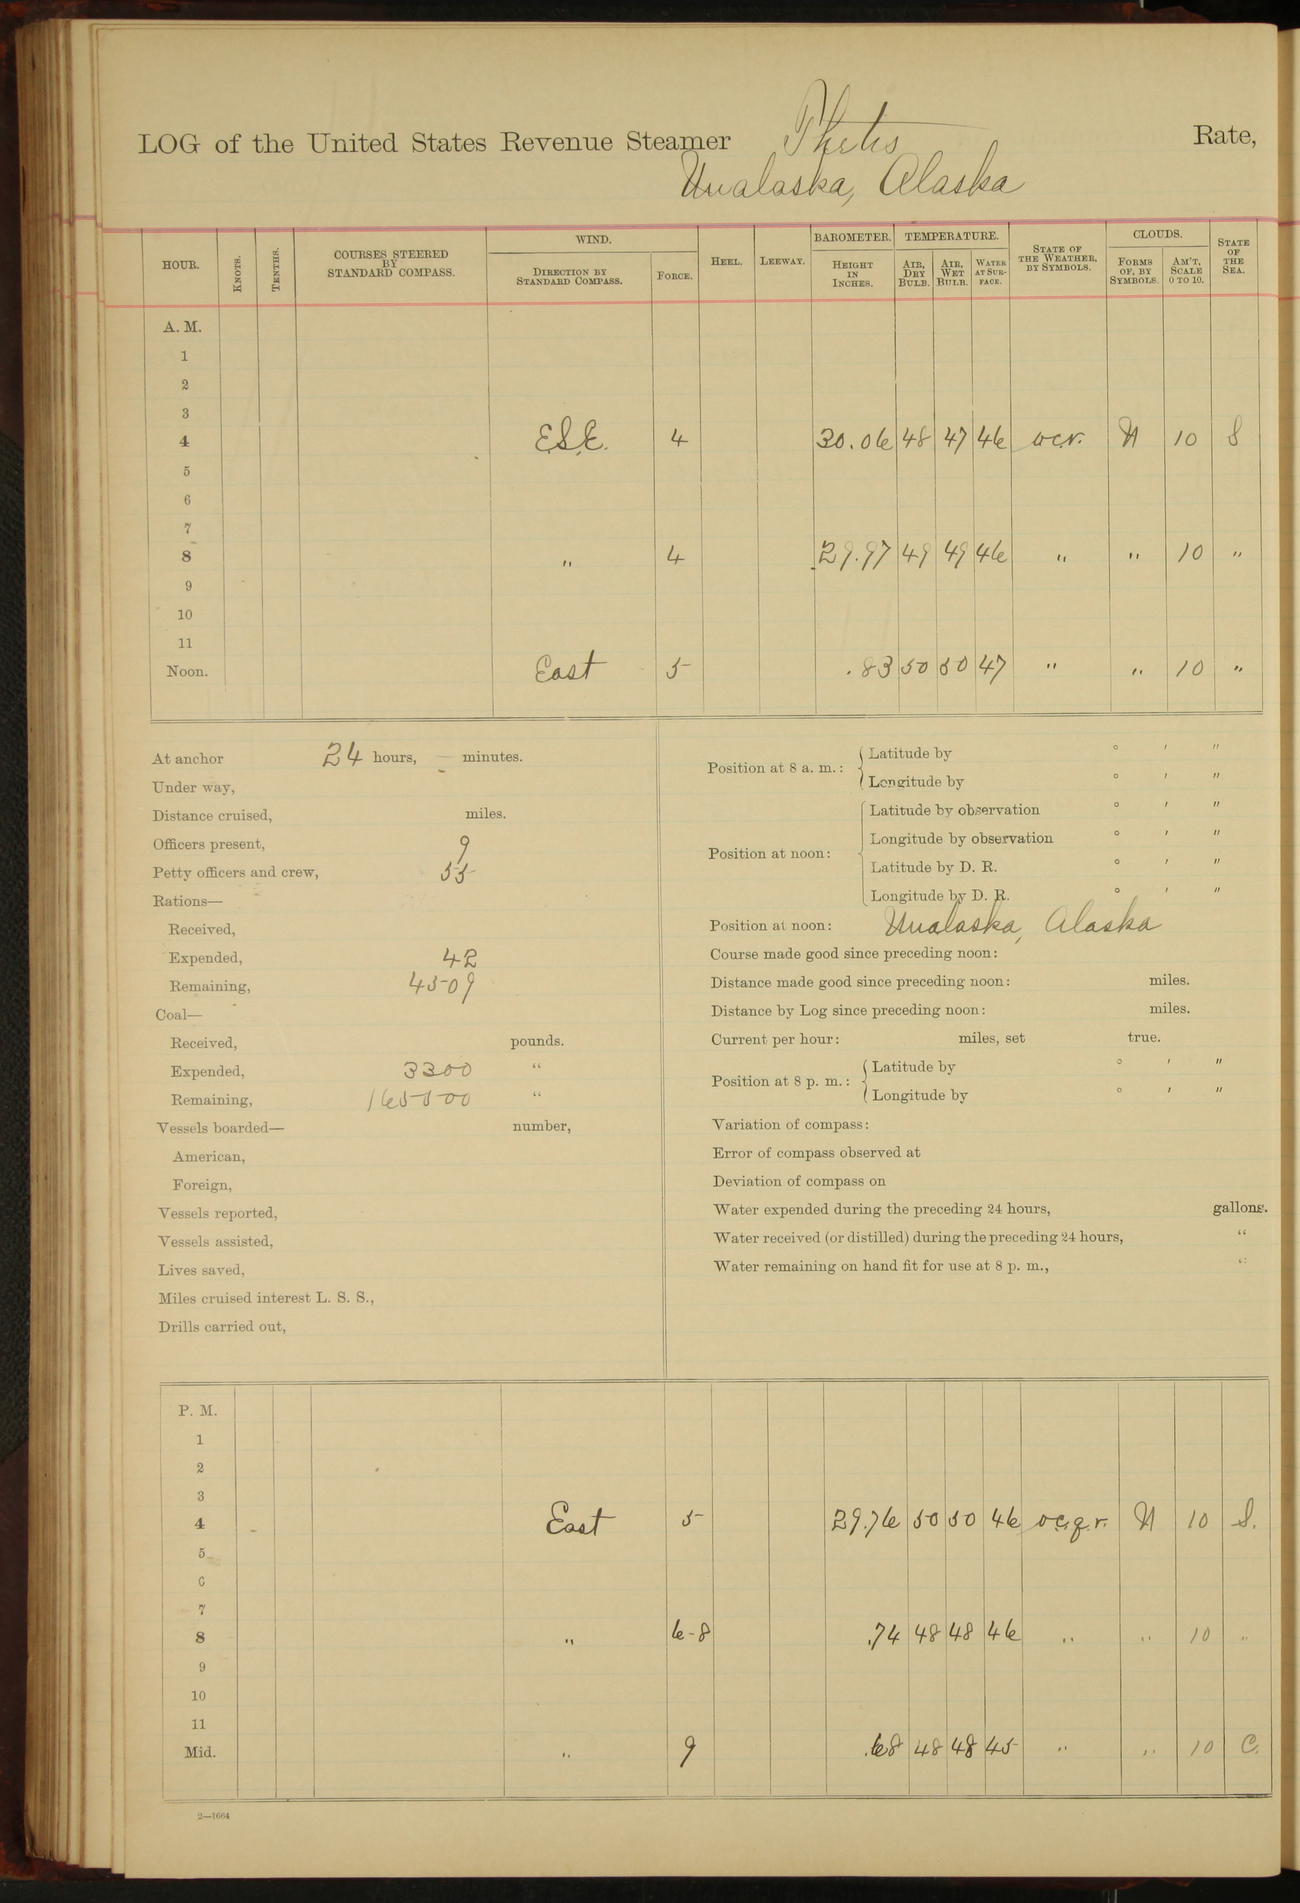 LOG of the United States Revenue Steamer Thetis Rate,
Unalaska, Alaska
HOUR. KNOTS. TENTHS. COURSES STEERED BY STANDARD COMPASS. WIND. DIRECTION BY STANDARD COMPASS. FORCE. HEEL. LEEWAY. BAROMETER. HEIGHT IN INCHES. TEMPERATURE. AIR, DRY BULB. AIR, WET BULB. WATER AT SURFACE. STATE OF THE WEATHER, BY SYMBOLS. CLOUDS. FORMS OF, BY SYMBOLS. AM'T, SCALE 0 TO 10. STATE OF THE SEA.
A. M.
1
2
3
4 E.S.E. 4 30.06 48 47 46 o.c.r. N 10 S
5
6
7
8 " 4 29.97 49 49 46 " " 10 "
9
10
11
Noon. East 5 .83 50 50 47 " " 10 "
At anchor 24 hours, – minutes.
Under way,
Distance cruised, miles.
Officers present, 9
Petty officers and crew, 55
Rations—
Received,
Expended, 42
Remaining, 4509
Coal—
Received, pounds.
Expended, 3300 "
Remaining, 165500 "
Vessels boarded— number,
American,
Foreign,
Vessels reported,
Vessels assisted,
Lives saved,
Miles cruised interest L. S. S.,
Drills carried out,
Position at 8 a. m.: Latitude by ° ' "
Longitude by ° ' "
Position at noon: Latitude by observation ° ' "
Longitude by observation ° ' "
Latitude by D. R. ° ' "
Longitude by D. R. ° ' "
Position at noon: Unalaska, Alaska
Course made good since preceding noon:
Distance made good since preceding noon: miles.
Distance by Log since preceding noon: miles.
Current per hour: miles, set true.
Position at 8 p. m.: Latitude by ° ' "
Longitude by ° ' "
Variation of compass:
Error of compass observed at
Deviation of compass on
Water expended during the preceding 24 hours, gallons.
Water received (or distilled) during the preceding 24 hours, "
Water remaining on hand fit for use at 8 p. m., "
P. M.
1
2
3
4 East 5 29.76 50 50 46 o.c.q.r. N 10 S.
5
6
7
8 " 6-8 .74 48 48 46 " " 10 "
9
10
11
Mid. " 9 .68 48 48 45 " " 10 C.
2—1664